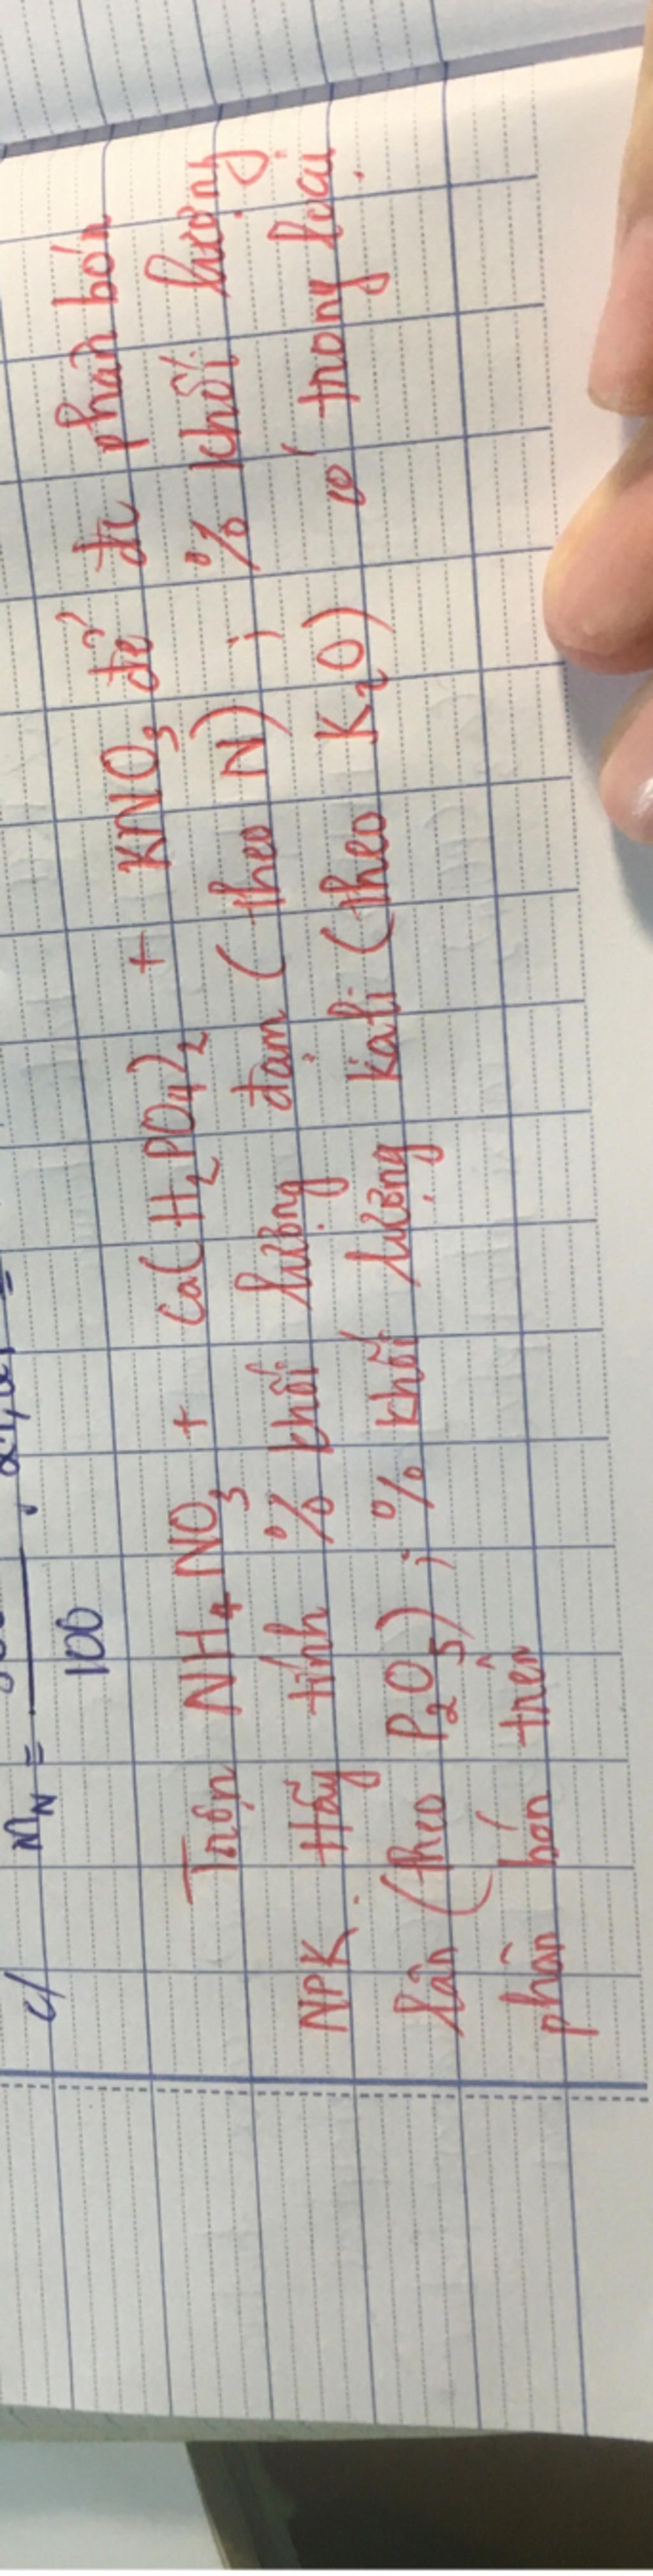 c/ mN =
100
Trộn NH4NO3 + Ca(H2PO4)2 + KNO3 để đc phân bón
NPK. Hãy tính % khối lượng đạm (theo N) ; % khối lượng
lân (theo P2O5) ; % khối lượng kali (theo K2O) có trong loại
phân bón trên